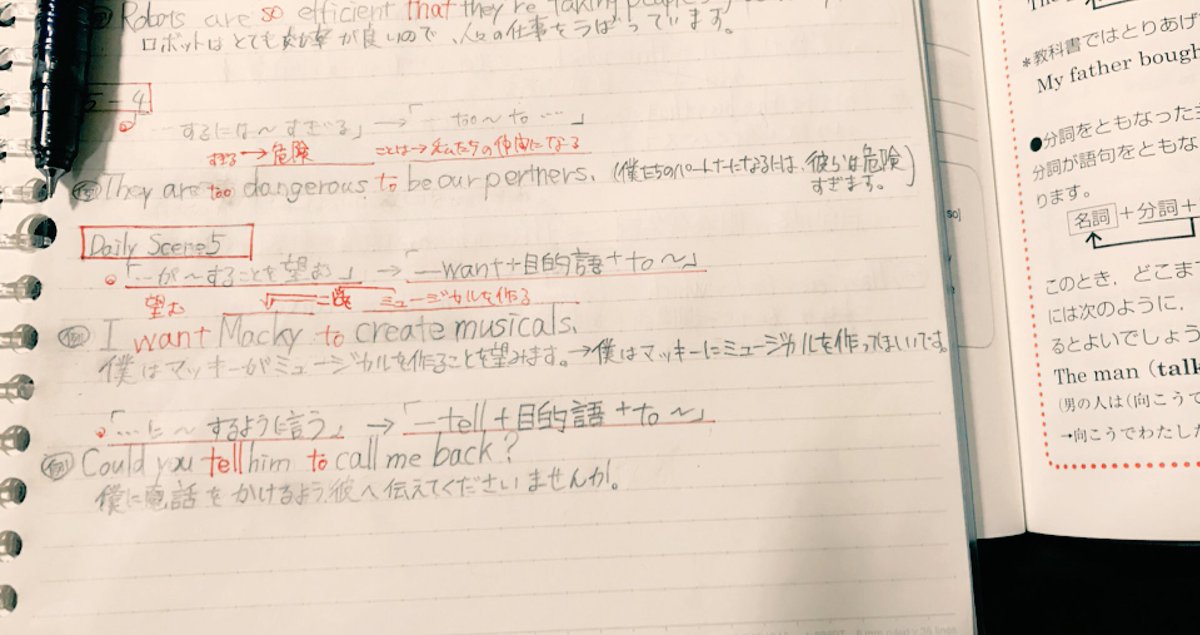 Robots are so efficient that they're taking people
ロボットはとても効率が良いので、人々の仕事をうばっています。
5-4
…するには～すぎる」→「― too～to …」
すぎる→危険 ことは→私たちの仲間になる
例 They are too dangerous to be our pertners. (僕たちのパートナーになるには、彼らは危険すぎます。)
Daily Scene5
「…が～することを望む」→「―want+目的語+to～」
望む ミュージカルを作る
例 I want Macky to create musicals.
僕はマッキーがミュージカルを作ることを望みます。→僕はマッキーにミュージカルを作ってほしいです。
「…に～するように言う」→「―tell+目的語+to～」
例 Could you tell him to call me back?
僕に電話をかけるよう彼へ伝えてくださいませんか。
*教科書ではとりあげ
My father bough
●分詞をともなった
分詞が語句をともな
ります。
名詞+分詞+
このとき、どこま
には次のように、
るとよいでしょう
The man (talk
(男の人は(向こうで
→向こうでわたした